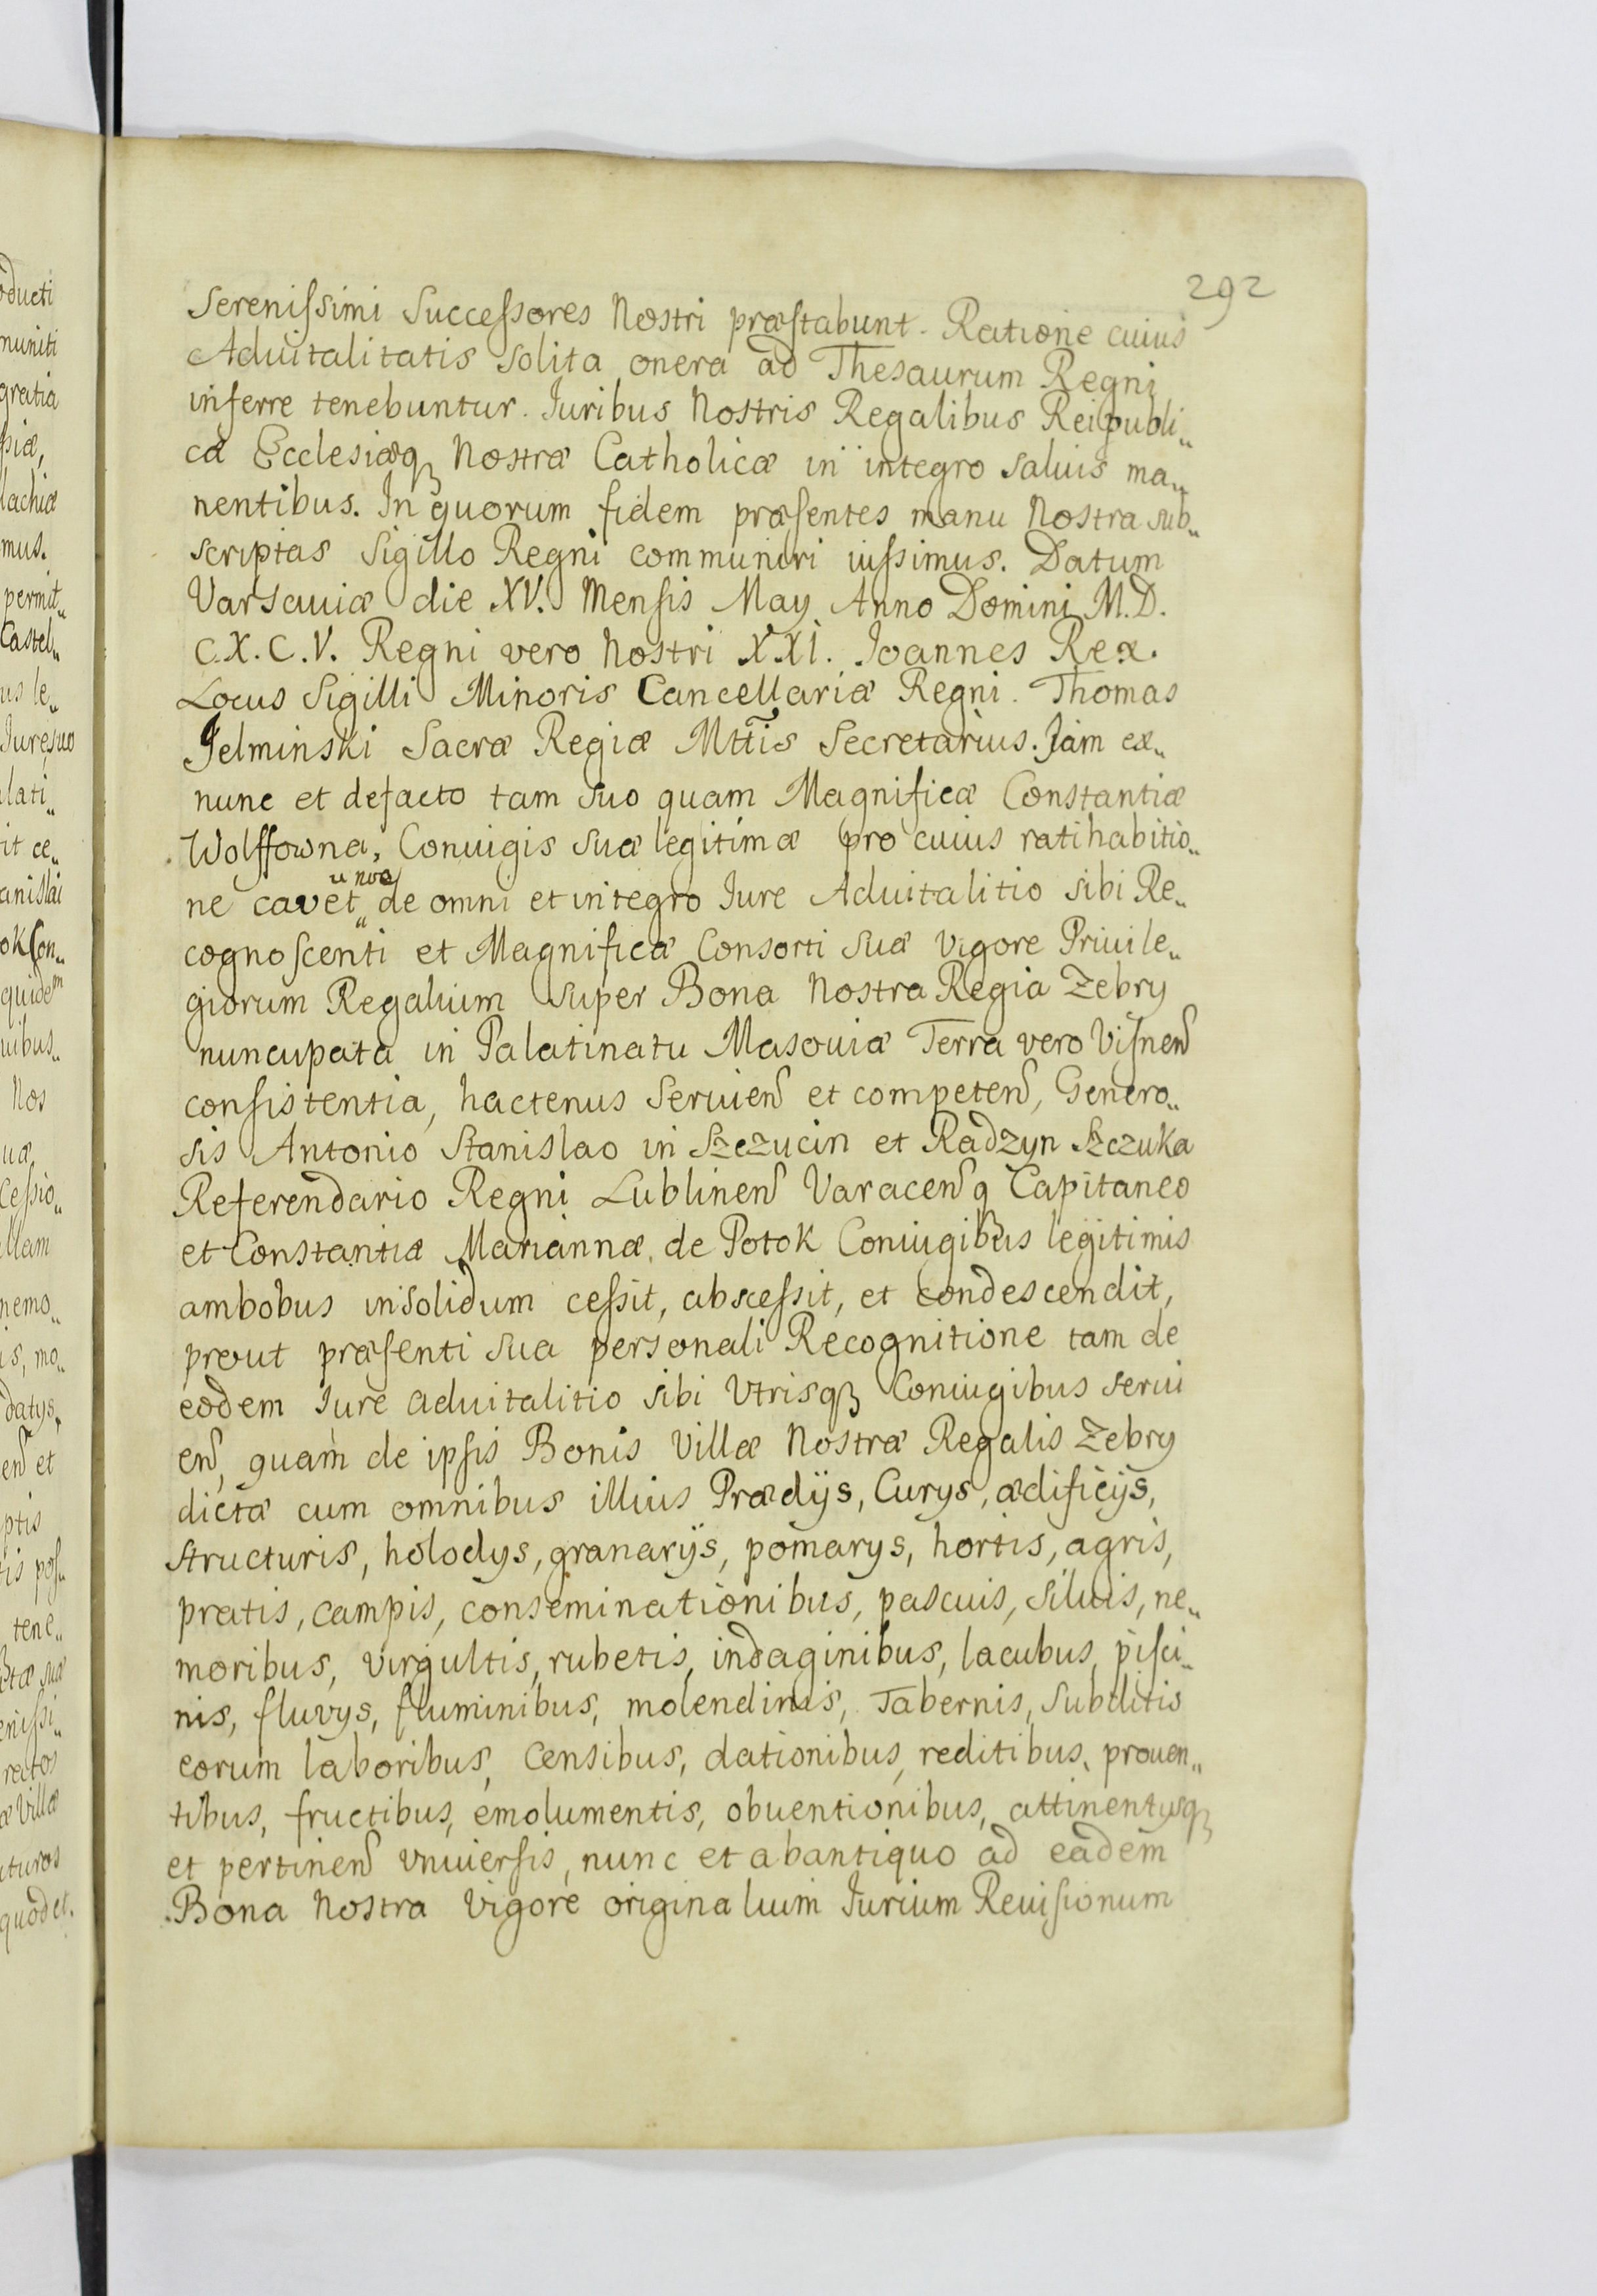 292
Serenissimi Successores Nostri præstabunt. Ratione cuius
Aduitalitatis solita onera ad Thesaurum Regni
inferre tenebuntur. Iuribus Nostris Regalibus Reipubli„
cæ Ecclesiæq₃ Nostræ Catholicæ in integro saluis ma„
nentibus. In quorum fidem præsentes manu Nostra sub„
scriptas Sigillo Regni communiri iussimus. Datum
Varsauiæ die XV. Mensis May Anno Domini M.D.
C.X.C.V. Regni vero Nostri XXI. Joannes Rex.
Locus Sigilli Minoris Cancellariæ Regni. Thomas
Jelminski Sacræ Regiæ Mttis Secretarius. Jam ex„
nunc et defacto tam suo quam Magnificæ Constantiæ
Wolffowna, Coniugis suæ legitimæ pro cuius ratihabitio„
ne cavet„ de omni et integro Iure Aduitalitio sibi Re„
cognoscenti et Magnificæ Consorti suæ vigore Priuile„
giorum Regalium super Bona Nostra Regia Zebry
nuncupata in Palatinatu Masouiæ Terra vero Visnen
consistentia, hactenus Seruien et competen, Genero„
sis Antonio Stanislao in Szczucin et Radzyn Szczuka
Referendario Regni Lublinen Varacenq Capitaneo
et Constantiæ Mariannæ de Potok Coniugibus legitimis
ambobus insolidum cessit, abscessit, et condescendit,
prout præsenti sua personali Recognitione tam de
eodem Iure aduitalitio sibi Vtrisq₃ Coniugibus serui
en, quam de ipsis Bonis Villæ Nostræ Regalis Zebry
dictæ cum omnibus illius Prædijs, Curys, ædificijs,
structuris, holodys, granarijs, pomarys, hortis, agris,
pratis, campis, conseminationibus, pascuis, siluis, ne„
moribus, virgultis, rubetis, indaginibus, lacubus, pisci„
nis, fluvys, fluminibus, molendinis, Tabernis, subditis
eorum laboribus, censibus, dationibus, reditibus, prouen„
tibus, fructibus, emolumentis, obuentionibus, attinentysq₃
et pertinen vniuersis, nunc et abantiquo ad eadem
Bona Nostra vigore originalium Iurium Reuisionum